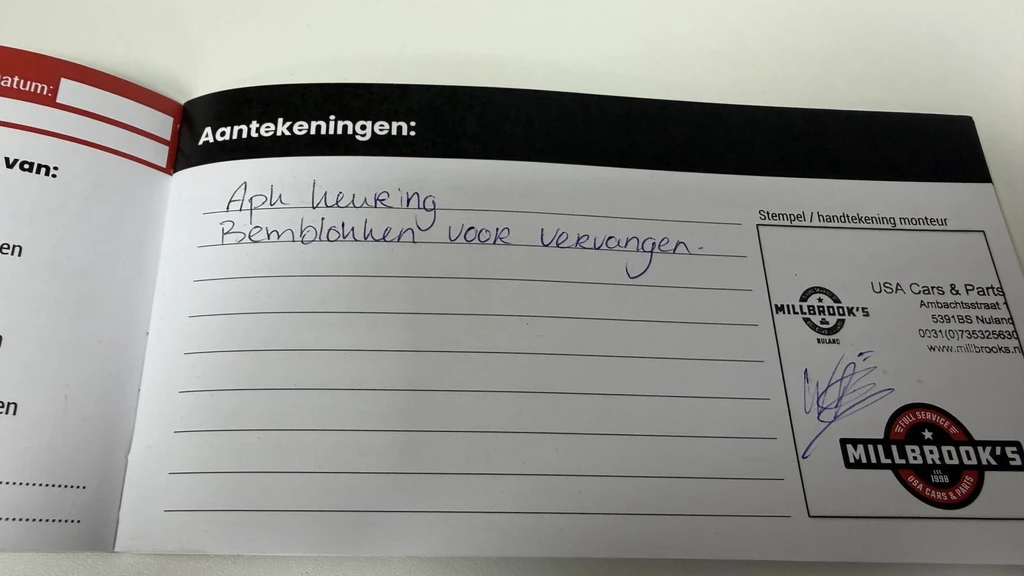 atum:
van:
en
en
Aantekeningen:
Apk keuring
Remblokken voor vervangen.
Stempel / handtekening monteur
MILLBROOK'S
NULAND
USA Cars & Parts
Ambachtsstraat
5391BS Nuland
0031(0)735325630
www.millbrooks.n
FULL SERVICE
MILLBROOK'S
EST.
1998
USA CARS & PARTS